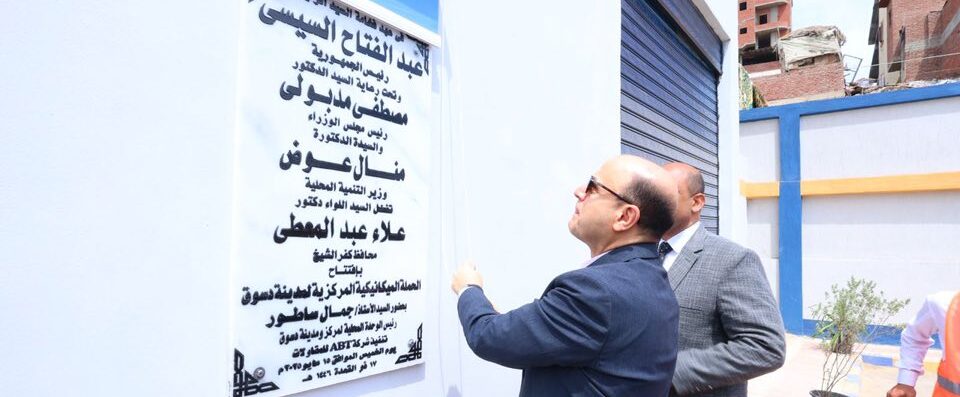 فى عهد فخامة السيد الرئيس
عبد الفتاح السيسى
رئيس الجمهورية
وتحت رعاية السيد الدكتور
مصطفى مدبولى
رئيس مجلس الوزراء
والسيدة الدكتورة
منال عوض
وزير التنمية المحلية
تفضل السيد اللواء دكتور
علاء عبد المعطى
محافظ كفر الشيخ
بإفتتاح
الحملة الميكانيكية المركزية لمدينة دسوق
بحضور السيد الأستاذ/ جمال ساطور
رئيس الوحدة المحلية لمركز ومدينة دسوق
تنفيذ شركة ABT للمقاولات
يوم الخميس الموافق ١٥ مايو ٢٠٢٥م
١٧ ذو القعدة ١٤٤٦ هـ